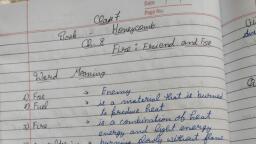 Date
Page No.
Class 7
Book - Honeycomb
Ch. 8
Fire : Friend and Foe
Word Meaning
1) Foe → Enemy
2) Fuel → is a material that is burned
to produce heat
3) Fire → is a combination of heat
energy and light energy
burning slowly without flame